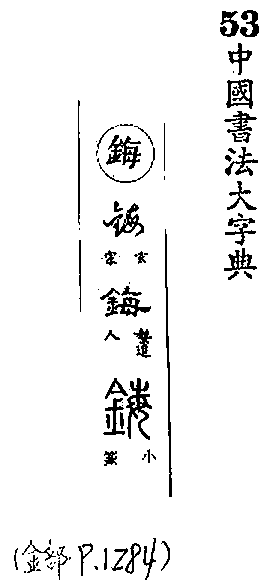 53
中國書法大字典
鋂
鋂
玄宗
鋂
人
鋂
小篆
(金部 P.1284)